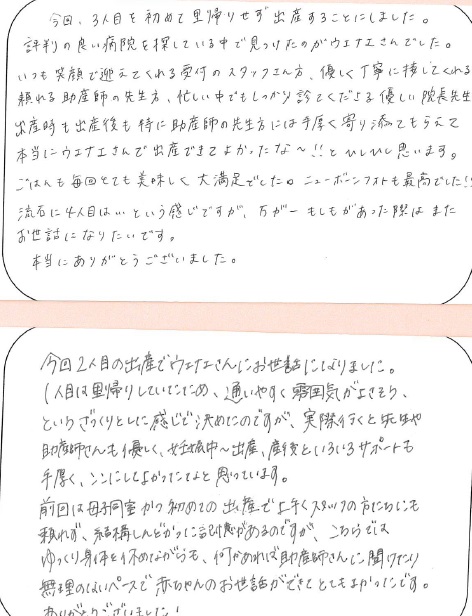 今回、3人目を初めて里帰りせず出産することにしました。
評判の良い病院を探している中で見つけたのがウエナエさんでした。
いつも笑顔で迎えてくれる受付のスタッフさん方、優しく丁寧に接してくれる
頼れる助産師の先生方、忙しい中でもしっかり診てくださる優しい院長先生
出産時も出産後も特に助産師の先生方には手厚く寄り添ってもらえて
本当にウエナエさんで出産できてよかったな〜!!とひしひし思います。
ごはんも毎回とても美味しく大満足でした。ニューボーンフォトも最高でした!!
流石に4人目は…という感じですが、万が一もしもがあった際はまた
お世話になりたいです。
本当にありがとうございました。
今回2人目の出産でウエナエさんにお世話になりました。
1人目は里帰りしていたため、通いやすく雰囲気がよさそう、
というざっくりとした感じで決めたのですが、実際行くと先生や
助産師さんも優しく、妊娠中〜出産、産後といろいろサポートも
手厚く、ここにしてよかったなと思っています。
前回は母子同室かつ初めての出産で上手くスタッフの方たちにも
頼れず、結構しんどかった記憶があるのですが、こちらでは
ゆっくり身体を休めながらも、何かあれば助産師さんに聞けたり
無理のないペースで赤ちゃんのお世話ができてとてもよかったです。
ありがとうございました!